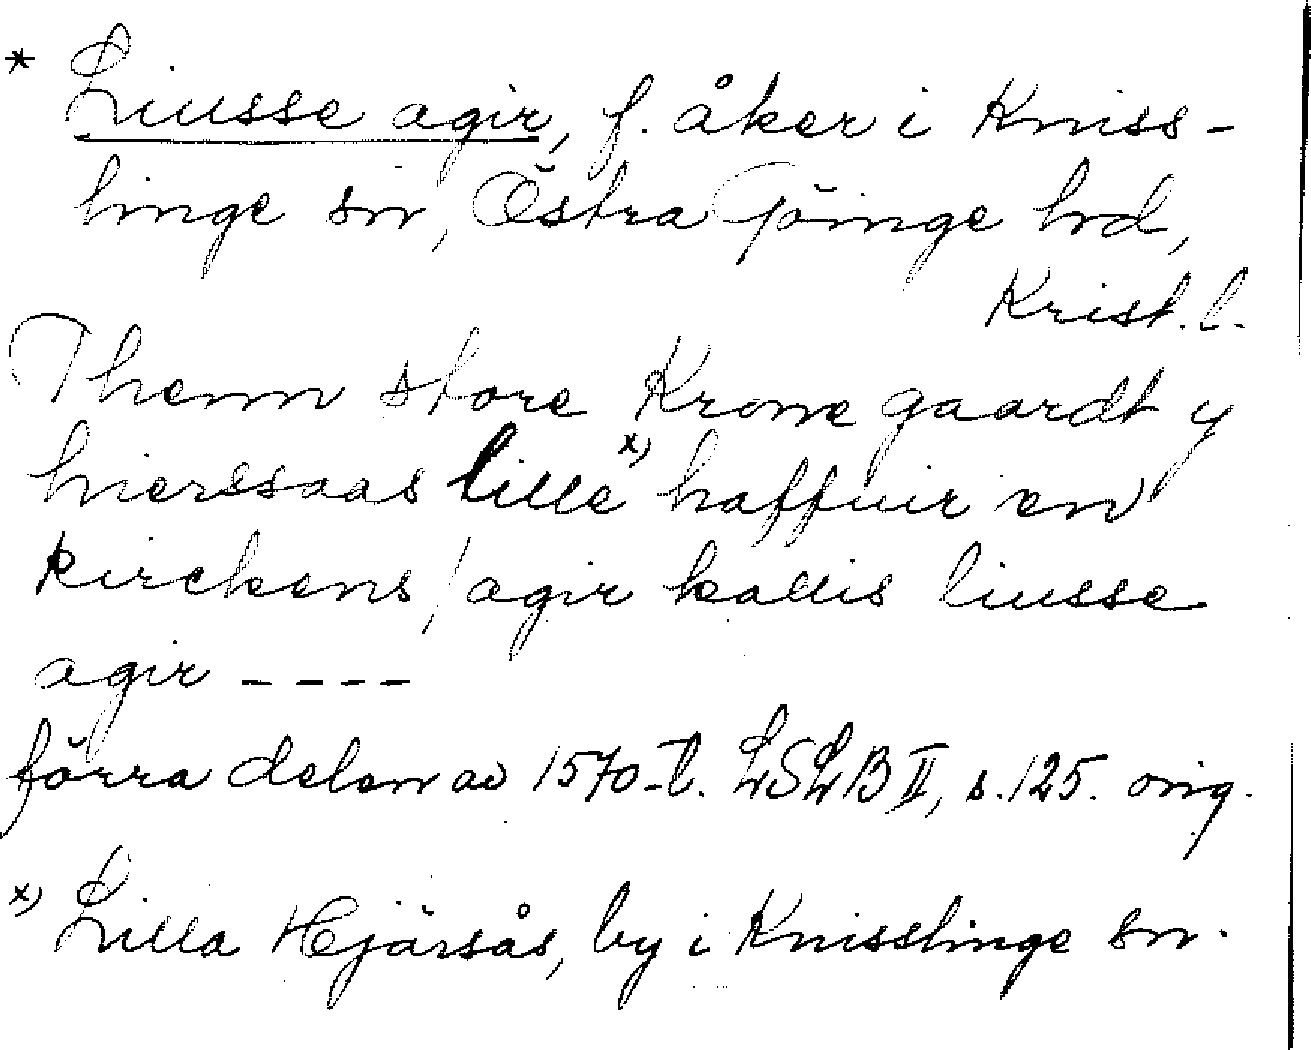 * Liusse agir, f. åker i Kniss-
linge sn, Östra Göinge hd,
Krist. l.
Thenn store Krone gaardt y
hierssaas lille x) haffuir en
kirckens / agir kallis liusse
agir ----
förra delen av 1570-t. LSLB II, s. 125. orig.
x) Lilla Hjärsås, by i Knisslinge sn.